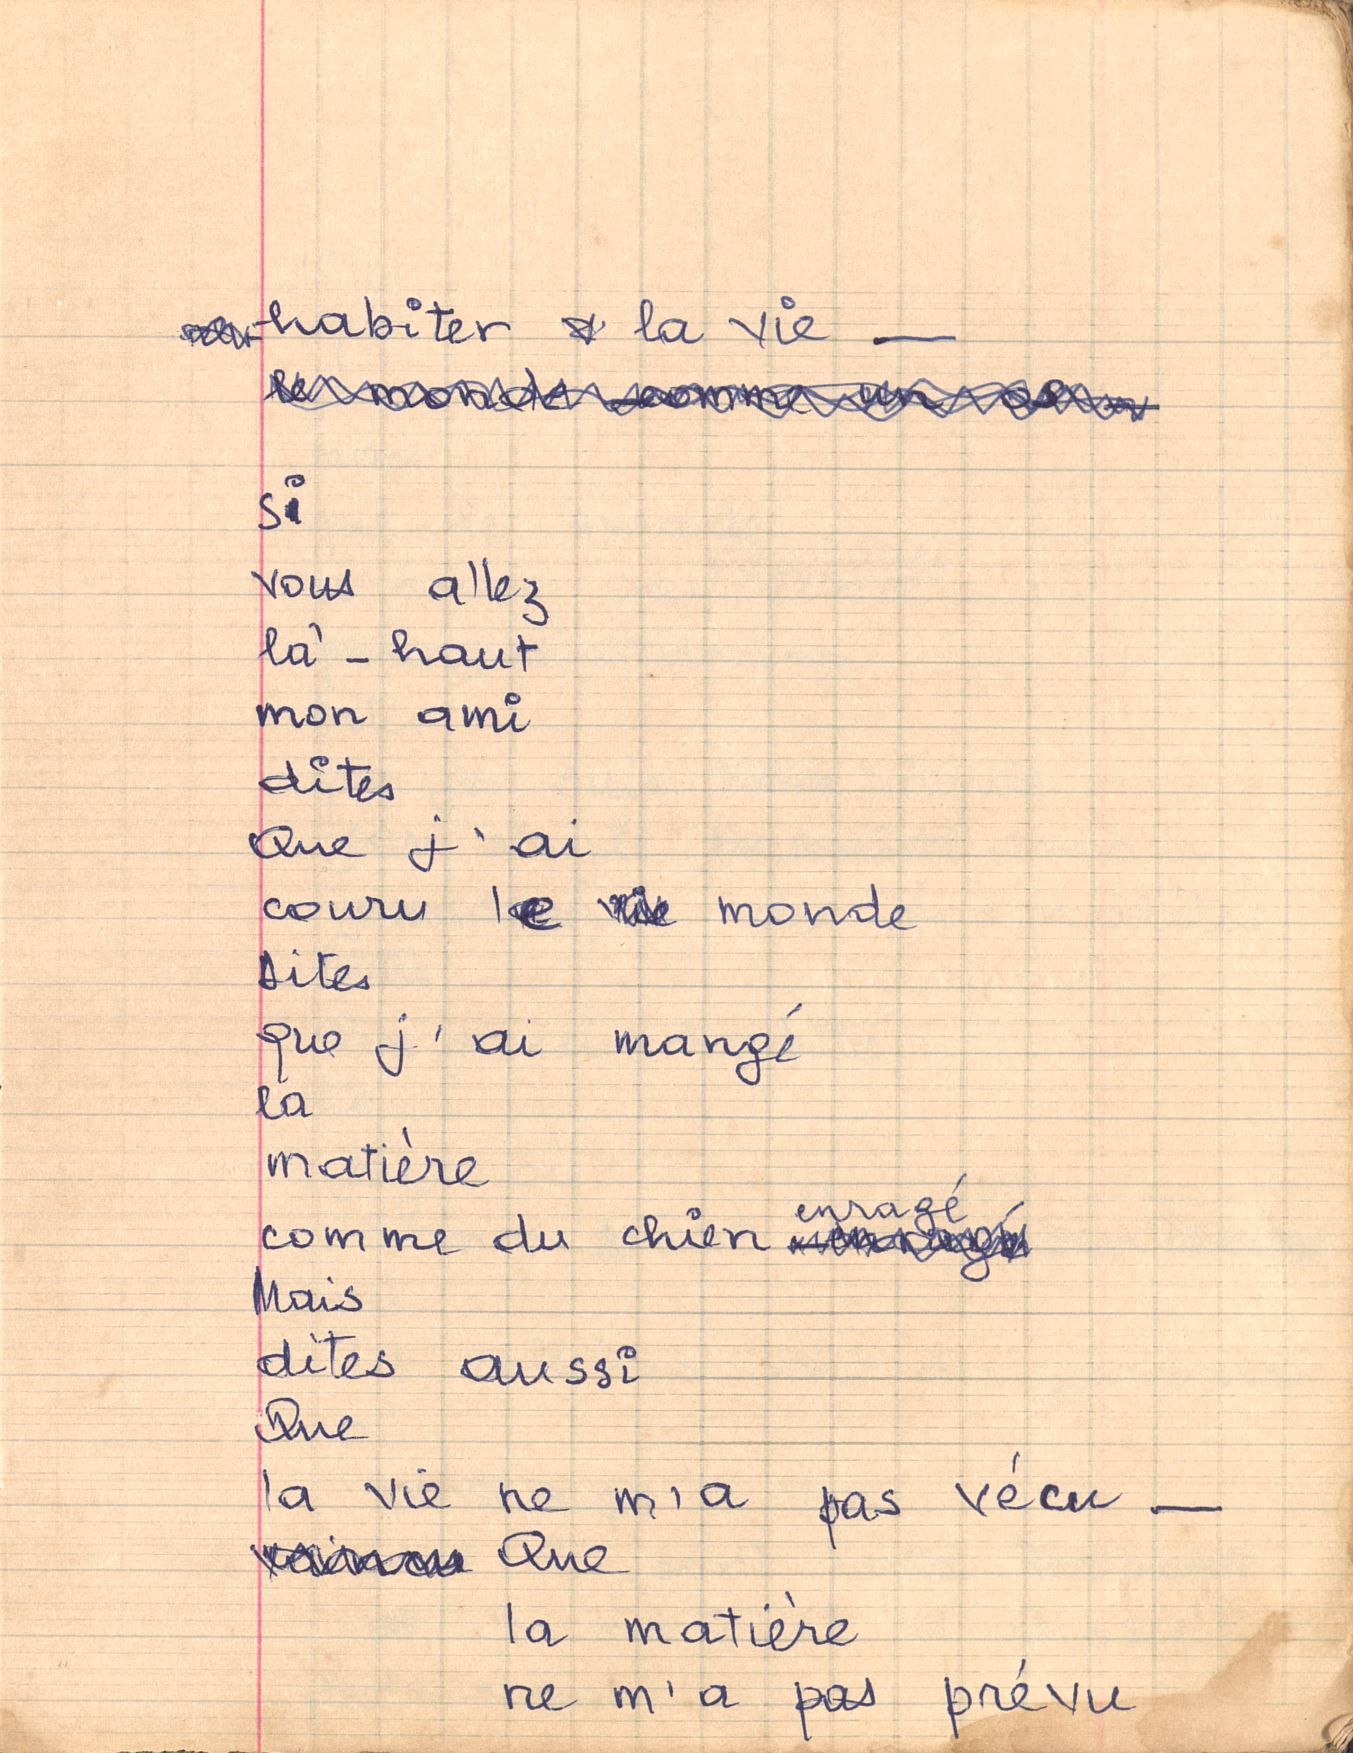 habiter la vie —
le monde comme un os
si
vous allez
là-haut
mon ami
dites
Que j'ai
couru le vie monde
Dites
que j'ai mangé
la
matière
enragé
comme du chien enragé
Mais
dites aussi
Que
la vie ne m'a pas vécu —
vaincu Que
la matière
ne m'a pas prévu